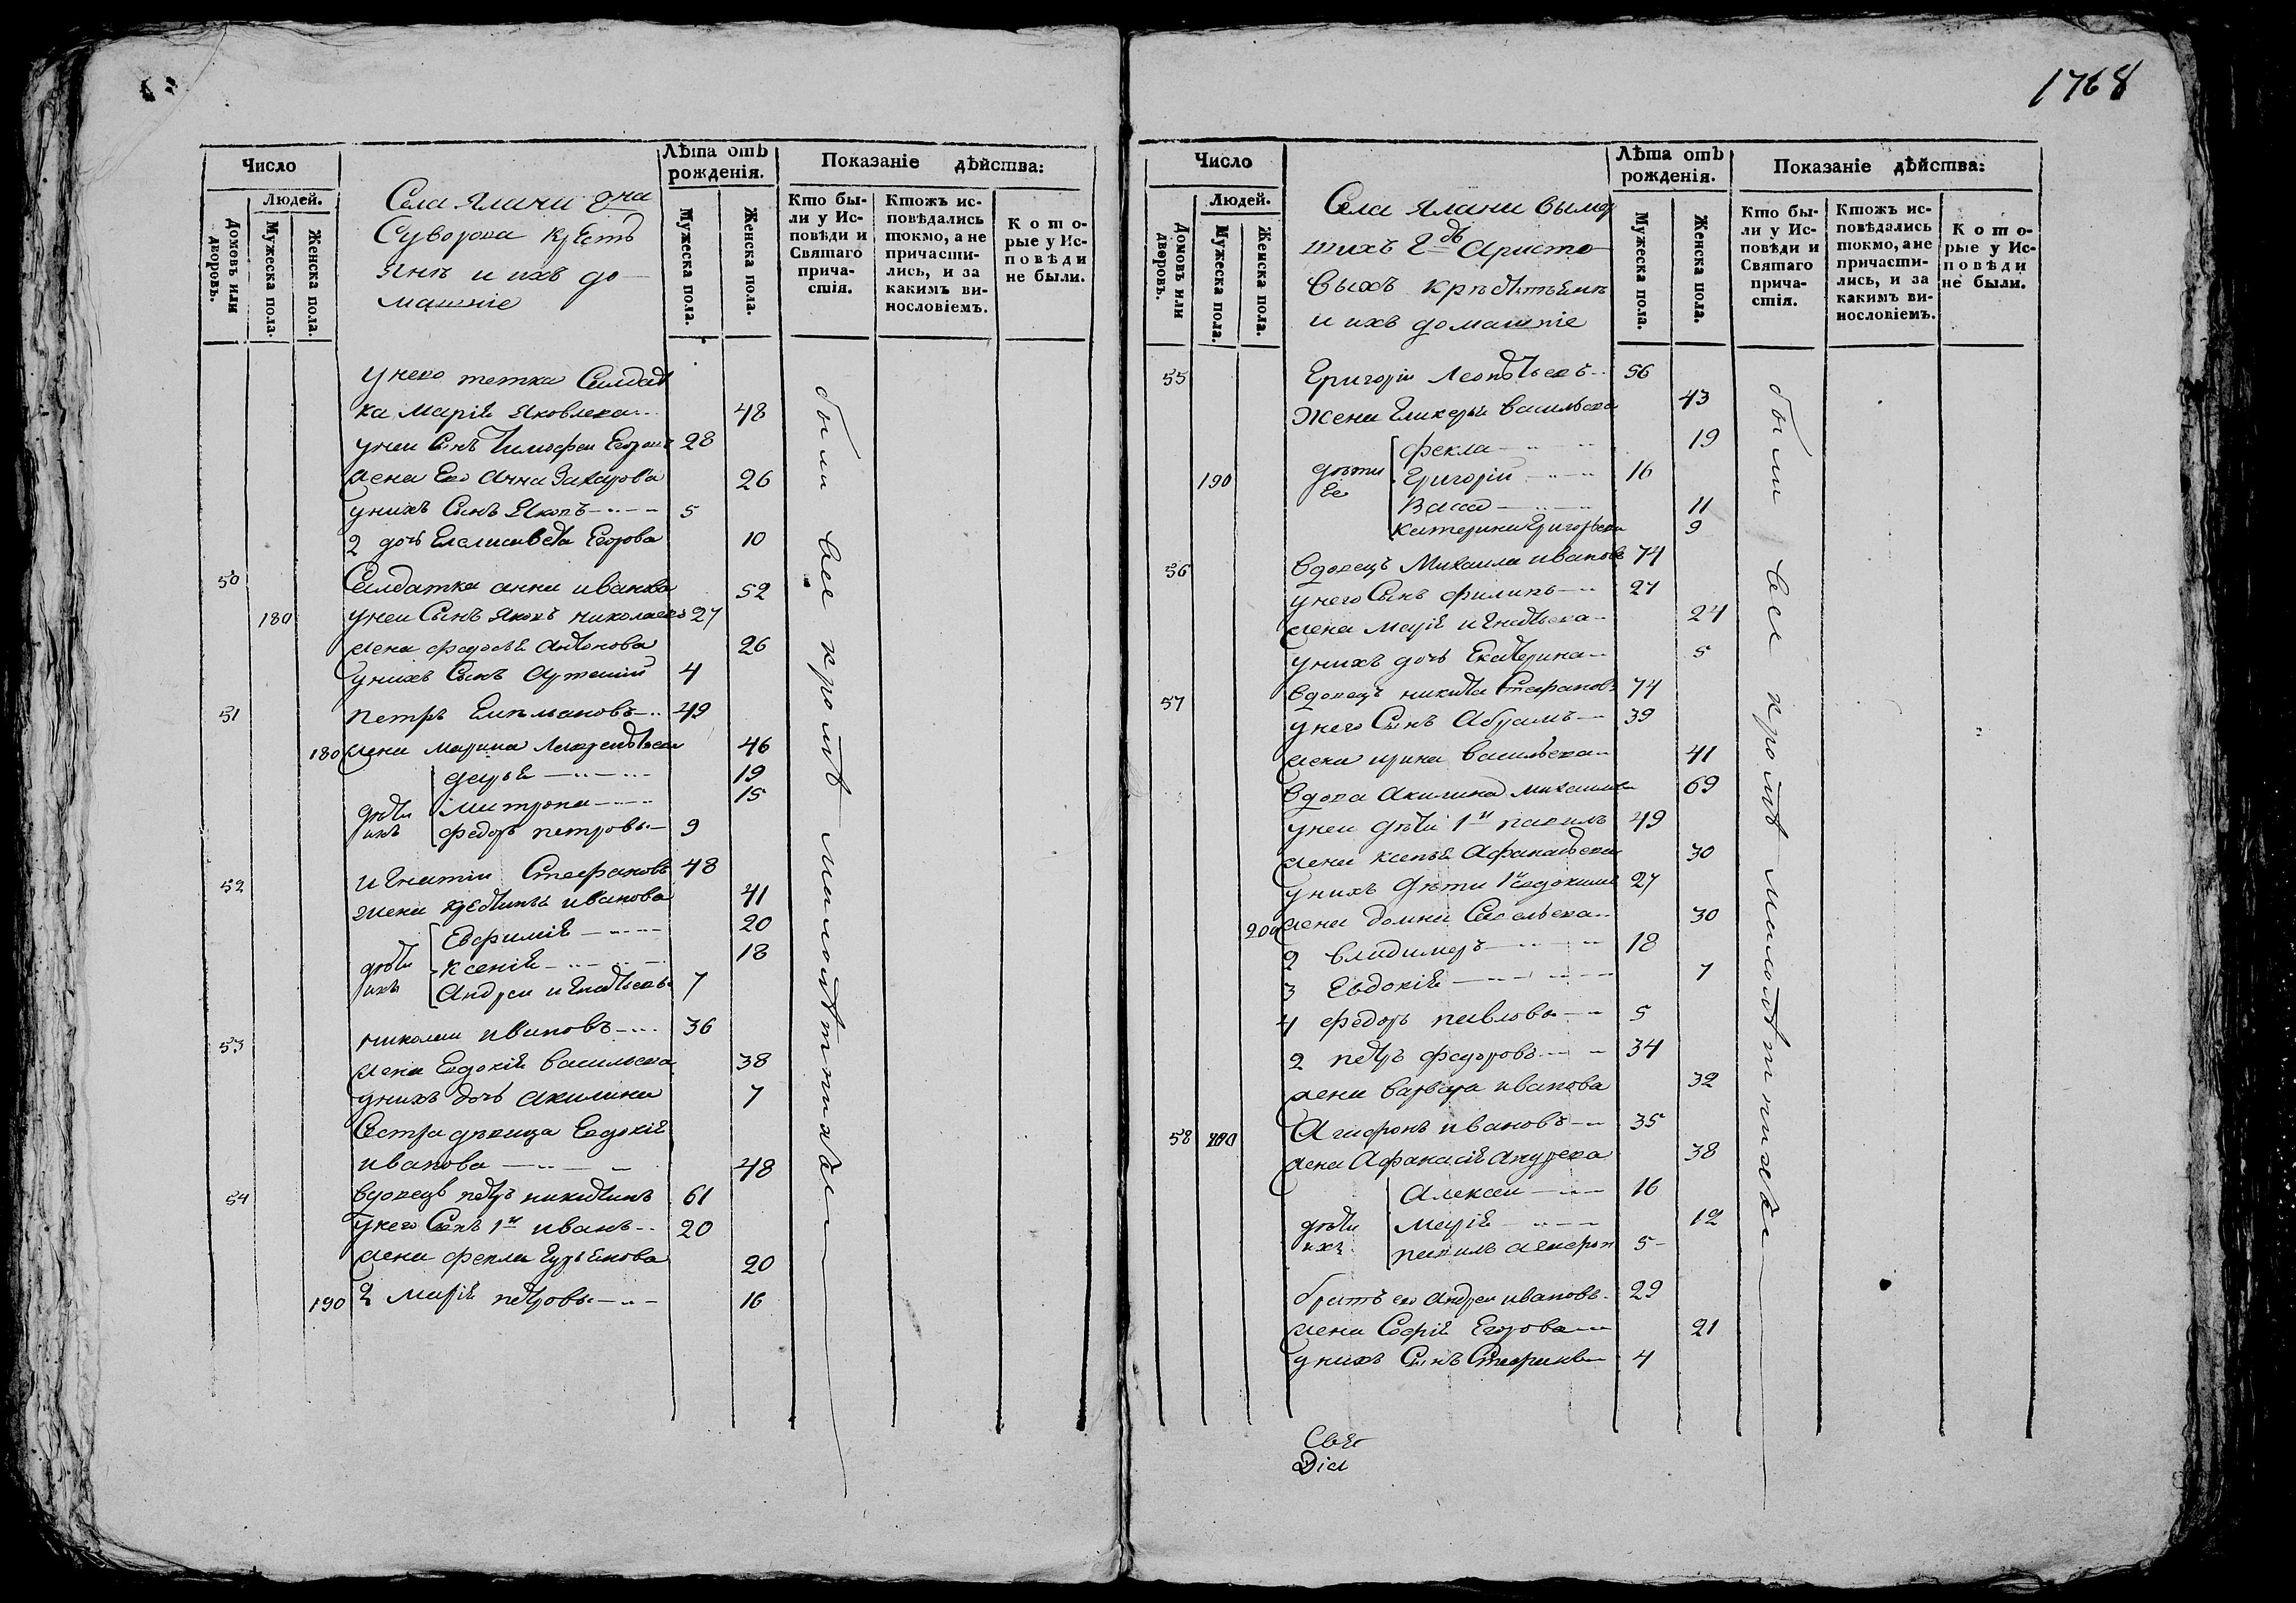 1768
Число
Людей.
Домовъ или дворовъ.
Мужеска пола.
Женска пола.
Села Ялани гна
Суворова кр
янъ и ихъ до
машніе
Лѣта отъ рожденія.
Мужеска пола.
Женска пола.
Показаніе дѣйства:
Кто были у Исповѣди и Святаго причастія.
Ктожъ исповѣдались токмо, а не причастились, и за какимъ винословіемъ.
Которые у Исповѣди не были.
были все кромѣ малолѣтнихъ
у него тетка Салдат
ка Марія Яковлева 48
у неи Сынъ Тимофеи Егоровъ 28
жена Его Анна Захарова 26
у нихъ Сынъ Яковъ 5
2 дочь Елисавета Егорова 10
50 Салдатка анна иванова 52
180 у неи Сынъ Яковъ николаевъ 27
жена федосья Антонова 26
у нихъ Сынъ Артемии 4
51 петръ Емельяновъ 49
180 жена марина 46
дарья 19
дѣти митрона 15
ихъ федоръ петровы 9
52 игнатии Стефановъ 48
жена иванова 41
Евфимія 20
дѣти ксенія 18
ихъ Андреи игнатьевы 7
53 николаи ивановъ 36
жена Евдокія васильева 38
у нихъ дочь акилина 7
Сестра дѣвица Евдокія
иванова 48
54 вдовецъ петръ никитинъ 61
у него Сынъ 1й иванъ 20
жена фекла Гурьянова 20
190 2 марія петровы 16
Число
Людей.
Домовъ или дворовъ.
Мужеска пола.
Женска пола.
Села Ялани вымор
шихъ Гдъ Аристо
выхъ
и ихъ домашніе
Лѣта отъ рожденія.
Мужеска пола.
Женска пола.
Показаніе дѣйства:
Кто были у Исповѣди и Святаго причастія.
Ктожъ исповѣдались токмо, а не причастились, и за какимъ винословіемъ.
Которые у Исповѣди не были.
были все кромѣ малолѣтнихъ
55 Григоріи Леонтьевъ 56
Жена Гликерья васильева 43
фекла 19
190 дѣти Григоріи 16
Ее Васса 11
Катерина Григорьевы 9
56 вдовецъ Михаила ивановъ 74
у него Сынъ филипъ 27
жена марія игнатьева 24
у нихъ дочь Екатерина 5
57 вдовецъ никита Стефановъ 74
у него Сынъ Абрамъ 39
жена ирина васильева 41
вдова Акилина михаилова 69
у неи дѣти 1й павилъ 49
жена ксенья Афанасьева 30
у нихъ дѣти 1й евдокимъ 27
200 жена домна Савельева 30
2 владимеръ 18
3 Евдокія 7
4 федоръ павловы 5
2 петръ федоровъ 34
жена варвара иванова 32
58 200 Агафонъ ивановъ 35
жена Афанасія 38
Алексеи 16
дѣти марія 12
ихъ павилъ агафон 5
братъ его андреи ивановъ 29
жена Софія Егорова 21
у нихъ Сынъ Стефанъ 4